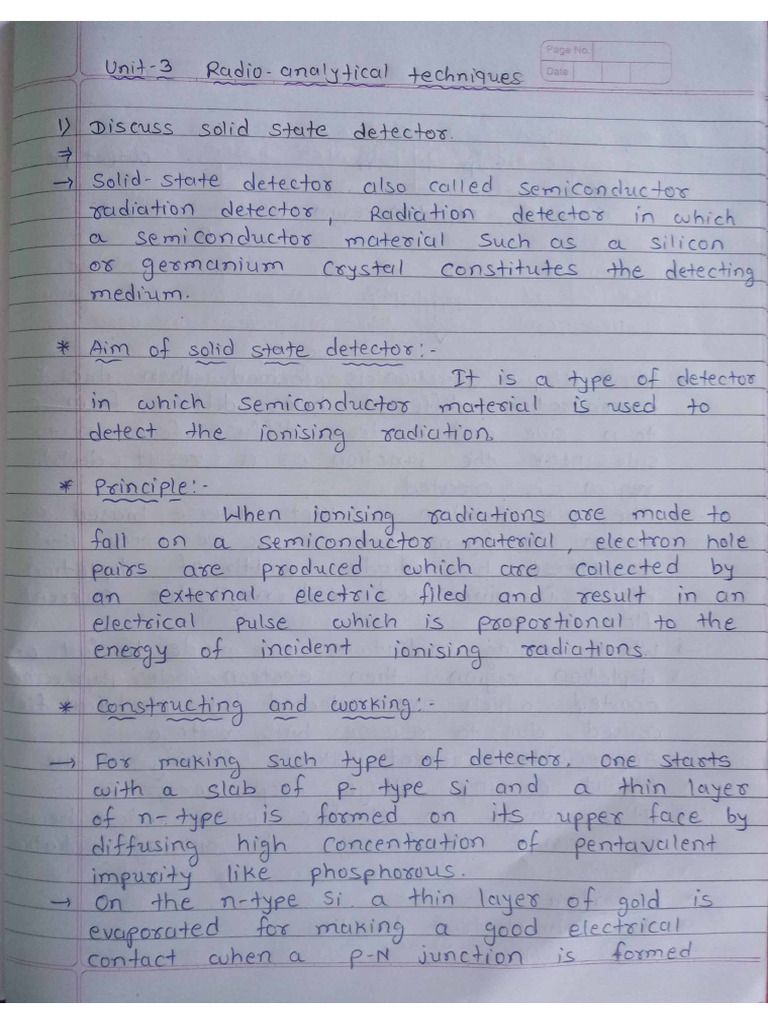 Page No.
Date
Unit-3 Radio-analytical techniques
1) Discuss solid state detector.
⇒
→ Solid-state detector also called semiconductor
radiation detector, Radiation detector in which
a semiconductor material such as a silicon
or germanium crystal constitutes the detecting
medium.
* Aim of solid state detector:-
It is a type of detector
in which semiconductor material is used to
detect the ionising radiation.
* Principle:-
When ionising radiations are made to
fall on a semiconductor material, electron hole
pairs are produced which are collected by
an external electric filed and result in an
electrical pulse which is proportional to the
energy of incident ionising radiations.
* Constructing and working:-
→ For making such type of detector, one starts
with a slab of p-type si and a thin layer
of n-type is formed on its upper face by
diffusing high concentration of pentavalent
impurity like phosphorous.
→ On the n-type si a thin layer of gold is
evaporated for making a good electrical
contact when a p-N junction is formed